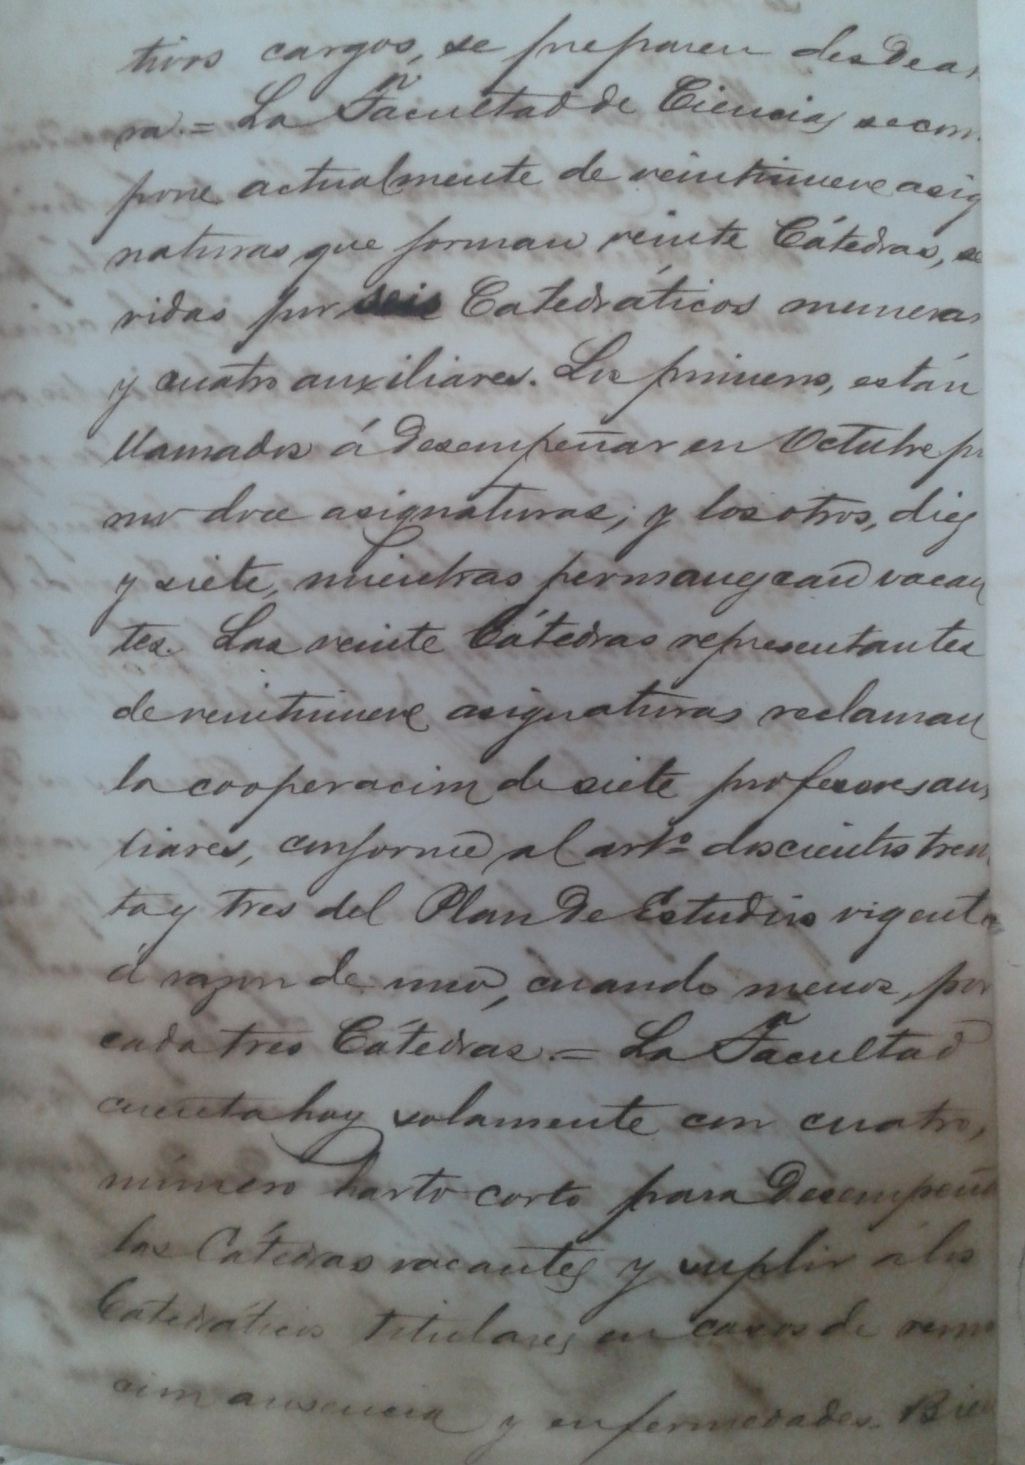 tivos cargos, se preparen desde a
ra.= La Facultad de Ciencias se com
pone actualmente de veintinueve asig
naturas que forman veinte Cátedras, se
vidas por seis Catedráticos numera
y cuatro auxiliares. Los primeros, están
llamados á desempeñar en Octubre pr
mo doce asignaturas; y los otros, diez
y siete, mientras permanezcan vacan
tes. Las veinte Cátedras representantes
de veintinueve asignaturas reclaman
la cooperacion de siete profesores aux
liares, conforme al artº doscientos trein
ta y tres del Plan de Estudios vigente
á razon de uno, cuando menos, por
cada tres Cátedras.= La Facultad
cuenta hoy solamente con cuatro,
número harto corto para desempeña
las Cátedras vacantes y suplir á los
Catedráticos titulares en casos de reno
cion ausencia y enfermedades. Bien